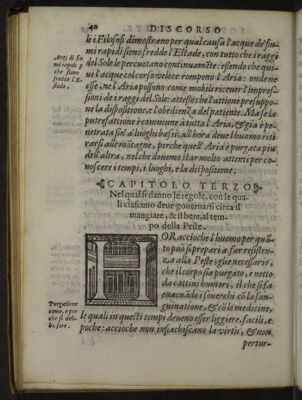 40 DISCORSO
li i Filosofi dimostrano per qual causa l'acque de' fiu
Acq; di fiu
mi rapidi sieno fredde l'Estade, con tutto che i raggi
mi rapidi p
del Sole le percuotano continuamēte: essendo che qui
che siano
ui l'acque col corso veloce rompeno l'Aria: onde ne
fredde l'E-
esse, ne l'Aria possono come mobili riceuer l'impres-
stade.
sioni de i raggi del Sole: attesoche l'attione presuppo-
ne la dispositione, & l'obedienza del patiente. Ma se la
putrefattione è commune à tutta l'Aria, & già è pe-
netrata sin' a luoghi bassi; all'hora deue l'huomo riti-
rarsi alle mōtagne, perche quell' Aria è purgata piu
dell'altra, nel che douemo star molto attenti per co-
noscere i tempi, i luoghi, e la dispositione.
CAPITOLO TERZO
Nel quale si danno le regole, con le qua-
li ciascuno deue gouernarsi circa il
mangiare, & il bere, al tem-
po della Peste.
OR accioche l'huomo per quā-
to può si prepari a far resisten-
za alla Peste, gli è necessario,
che il corpo sia purgato, e netto
da cattiui humori, il che si fa
Purgatione
euacuādo i souerchi cō la san-
come, e per
guinatione, & cō le medicine,
che si deb-
le quali in questi tempi deueno esser liggiere, facili, e
ba fare.
poche: accioche non infiachiscano la virtù, & non
pertur-